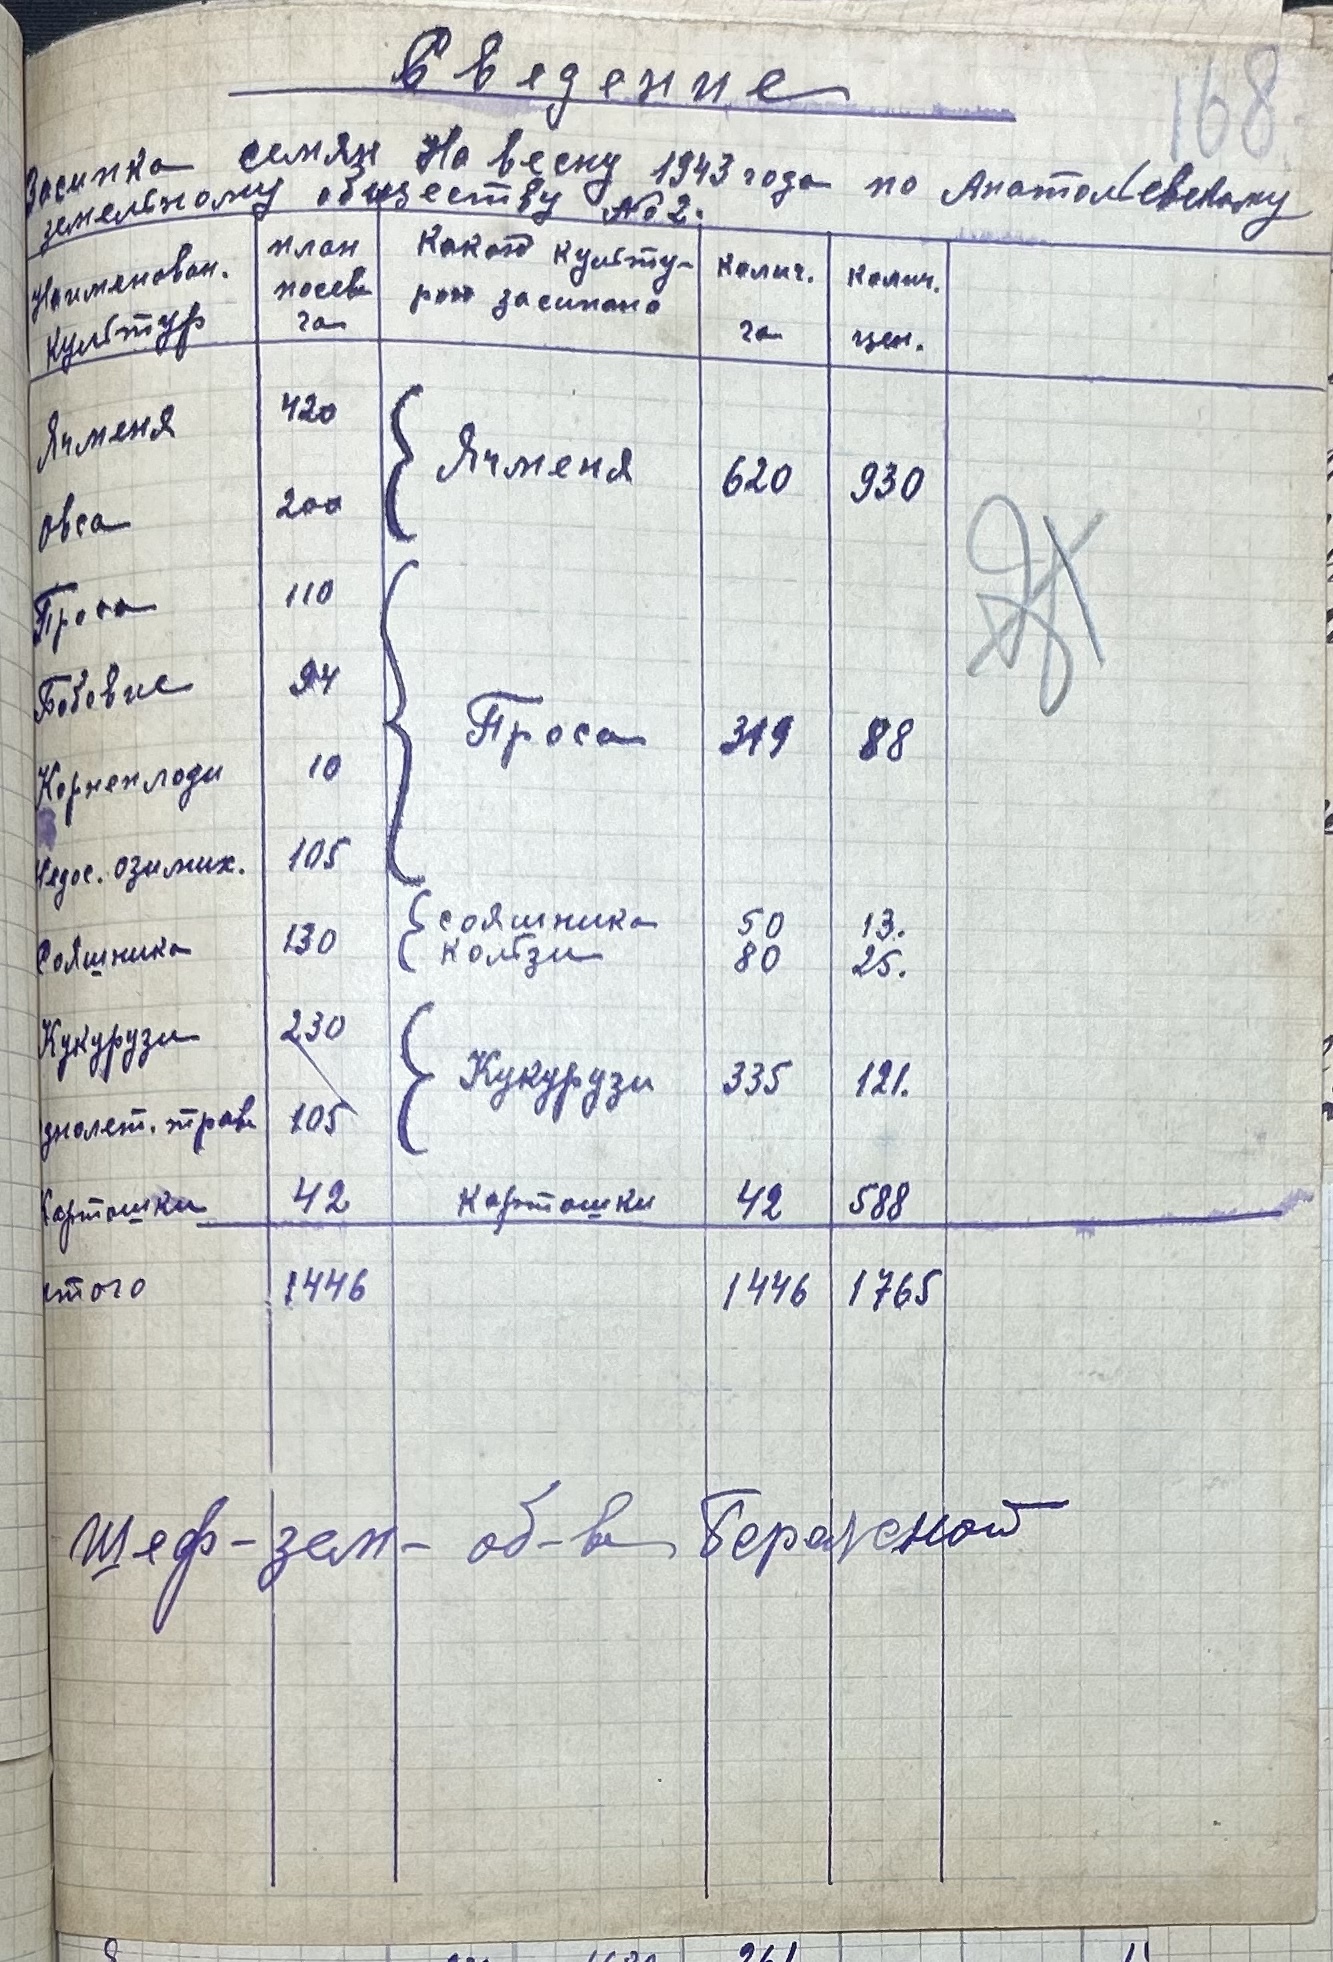 168
Введение
Засипка семян на весну 1943 года по Анатольевскому
земельному обществу № 2.
Наименован. культур | план посева га | какой культу-рой засипано | колич. га | колич. цен.
Ячменя 420 Ячменя 620 930
овса 200
Проса 110 Проса 319 88
Бобовие 94
Корнеплоди 10
Недос. озимих. 105
Сояшника 130 сояшника 50 13.
кользи 80 25.
Кукурузи 230 Кукурузи 335 121.
днолет. трав 105
Картошки 42 картошки 42 588
итого 1446 1446 1765
Шеф-зем-об-ва